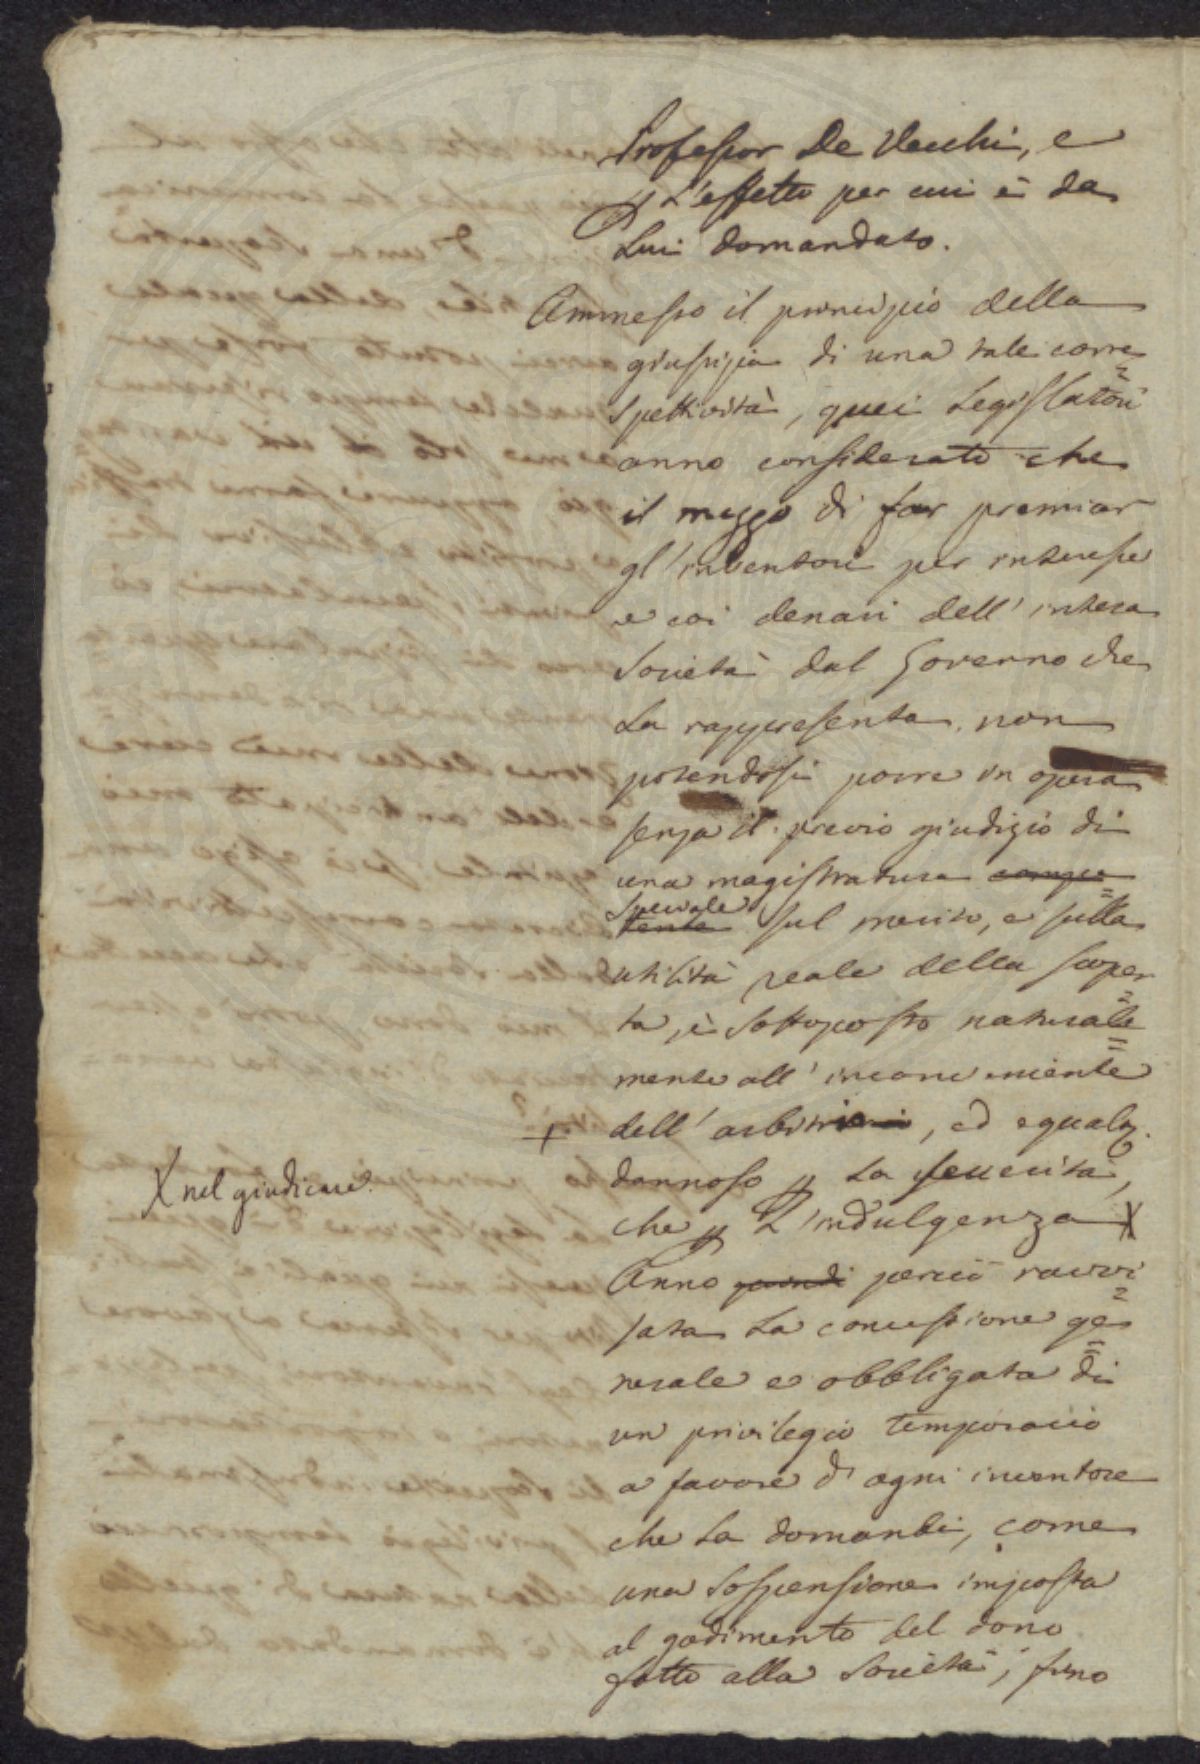 Professor De Vecchi, e
p L'effetto per cui è da
Lui domandato.
Ammesso il principio della
giustizia di una tale corre=
spettività, quei Legislatori
anno considerato che
il mezzo di far premiar
gl'inventori per interesse
e coi denari dell'intera
Società dal Governo che
La rappresenta, non
potendosi porre in opera
senza il previo giudizio di
una magistratura compe=
tente speciale sul merito, e sulla
utilità reale della scoper=
ta, è sottoposto naturale=
mente all'inconveniente
+ dell'arbitrio, ed egualm.
dannoso p La severità,
che p L'indulgenza X
X nel giudicare.
Anno quindi perciò ravvi=
sata La concessione ge=
nerale e obbligata di
un privilegio temporario
a favore d'ogni inventore
che La domandi, come
una sospensione imposta
al godimento del dono
fatto alla Società, fino